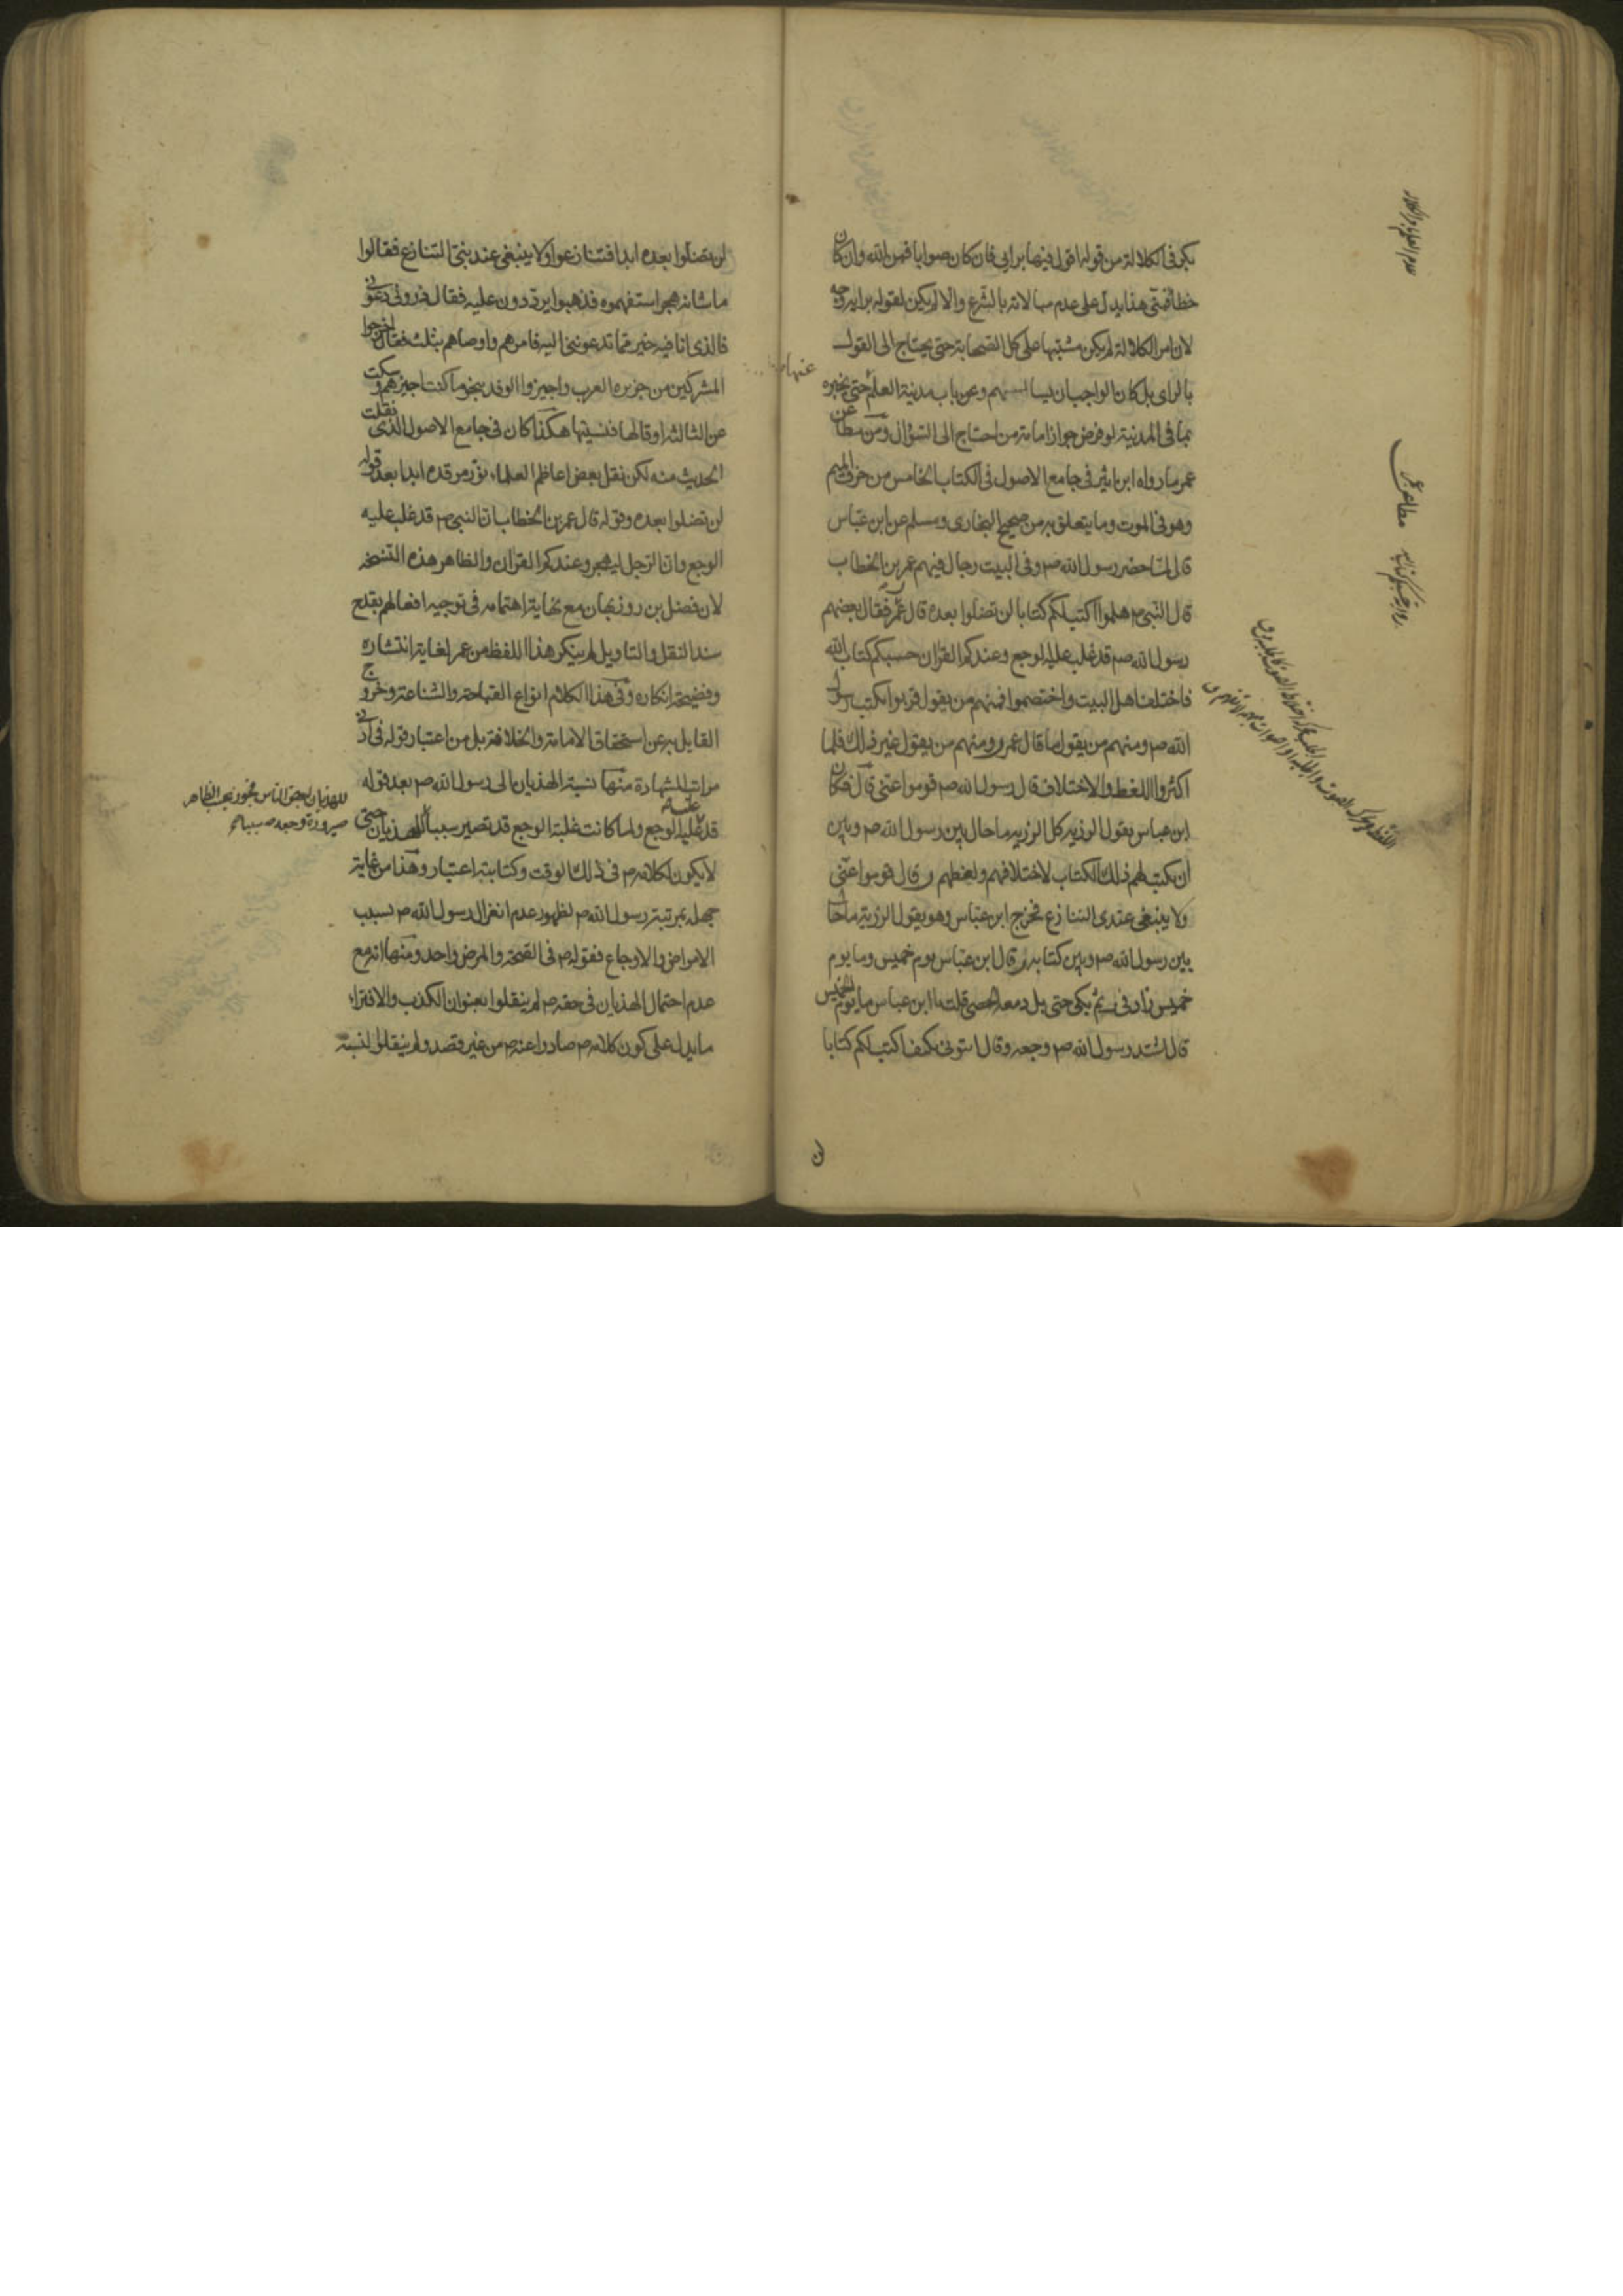 بكر في الكلالة من قوله اقول فيها برايي فان كان صوابا فمن الله وان كان
خطأ فمني هذا يدل على عدم مبالاته بالشرع والا لم يكن لقوله برايه وجه
لان امر الكلالة لم يكن مشتبها على كل الصحابة حتى يحتاج الى القول
بالراى بل كان الواجب ان يسال منهم وعن باب مدينة العلم حتى يخبره
بما في المدينة لو فرض جواز امامة من احتاج الى السؤال ومن مطاعن
عمر ما رواه ابن اثير في جامع الاصول في الكتاب الخامس من حرف الميم
وهو في الموت وما يتعلق به من صحيح البخارى ومسلم عن ابن عباس
قال لما حضر رسول الله ص وفي البيت رجال فيهم عمر بن الخطاب
قال النبي ص هلموا اكتب لكم كتابا لن تضلوا بعده قال عمر فقال بعضهم
رسول الله صم قد غلب عليه الوجع وعندكم القران حسبكم كتاب الله
فاختلف اهل البيت واختصموا فمنهم من يقول قربوا يكتب رسول
الله ص ومنهم من يقول ما قال عمر ومنهم من يقول غير ذلك فلما
اكثروا اللغط والاختلاف قال رسول الله ص قوموا عني قال فكان
ابن عباس يقول الرزيه كل الرزيه ما حال بين رسول الله ص وبين
ان يكتب لهم ذلك الكتاب لاختلافهم ولغطهم وقال قوموا عنى
ولا ينبغي عندى التنازع فخرج ابن عباس وهو يقول الرزية ما حال
بين رسول الله ص وبين كتابه وقال ابن عباس يوم خميس وما يوم
خميس زاد في ثم بكى حتى بل دمعه الحصى قلت يا ابن عباس ما يوم الخميس
قال اشتد رسول الله ص وجعه وقال ايتوني بكتف اكتب لكم كتابا
مطاعن عمر
لن تضلوا بعده ابدا فتنازعوا ولا ينبغي عند نبي التنازع فقالوا
ما شانه هجر استفهموه فذهبوا يرددون عليه فقال ذروني دعوني
فالذى انا فيه خير مما تدعونني اليه فامرهم واوصاهم بثلث فقال اخرجوا
المشركين من جزيره العرب واجيزوا الوفد بنحو ما كنت اجيزهم وسكت
عن الثالثه او قالها فنسيتها هكذا كان في جامع الاصول الذى نقلت
الحديث منه لكن نقل بعض اعاظم العلماء نور مرقده ابدا بعد قوله
لن تضلوا بعده وقوله قال عمر بن الخطاب ان النبي ص قد غلب عليه
الوجع وان الرجل ليهجر وعندكم القران والظاهر هذه النسخه
لان فضل بن روزبهان مع نهاية اهتمامه في توجيه افعالهم بقدح
سند النقل والتاويل لم ينكر هذا اللفظ من عمر لغاية انتشاره
وفضيحة انكاره وفي هذا الكلام انواع القباحة والشناعة وخروج
القايل به عن استحقاق الامامة والخلافة بل من اعتبار قوله في ادنى
مراتب الشهادة منها نسبة الهذيان الى رسول الله ص بعد قوله
قد غلب عليه الوجع ولما كانت غلبة الوجع قد تصير سببا للهذيان حتى
لا يكون لكلامه ص في ذلك الوقت وكتابته اعتبار وهذا من غاية
جهله بمرتبة رسول الله ص لظهور عدم انعزال رسول الله ص بسبب
الامراض والاوجاع فقوله ص في الصحة والمرض واحد ومنها انه مع
عدم احتمال الهذيان في حقه ص لم ينقلوا بعنوان الكذب والافتراء
ما يدل على كون كلامه ص صادرا عنه ص من غير قصد ولم ينقلوا لنسبة
للهذيان لبعض الناس بحسب الظاهر